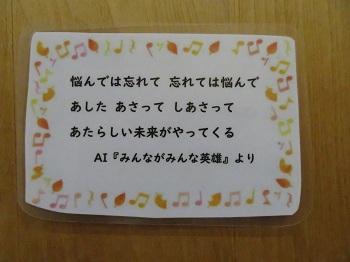 悩んでは忘れて 忘れては悩んで
あした あさって しあさって
あたらしい未来がやってくる
AI『みんながみんな英雄』より